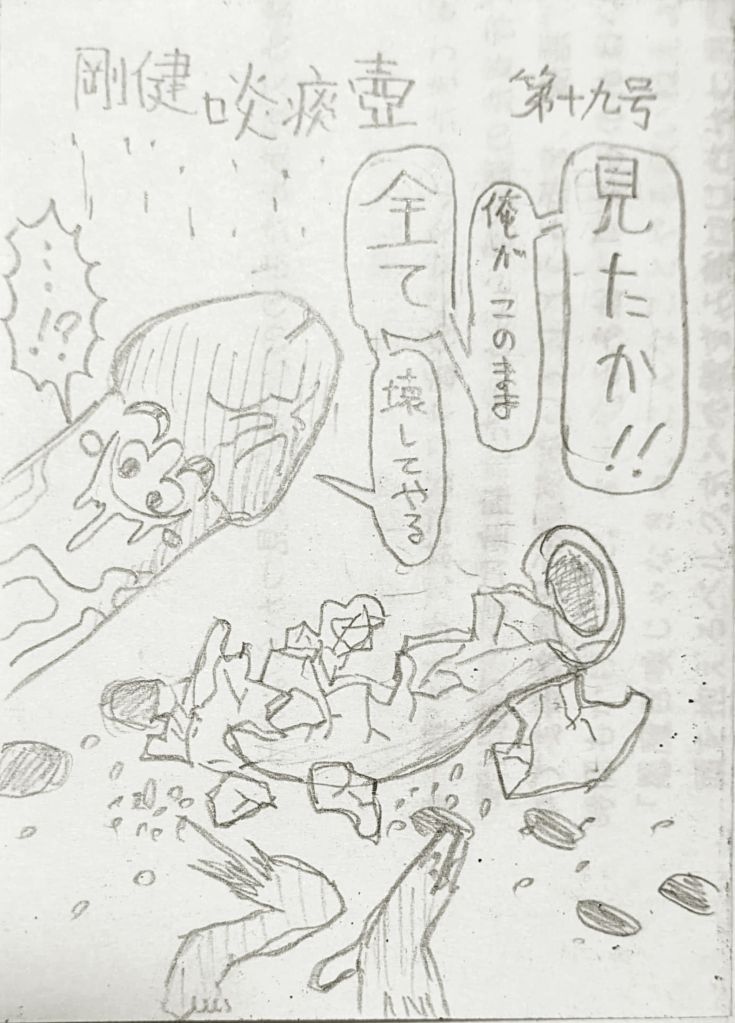 剛健啖痰壺 第十九号
見たか!!
俺が このまま
全て
壊してやる
…!?